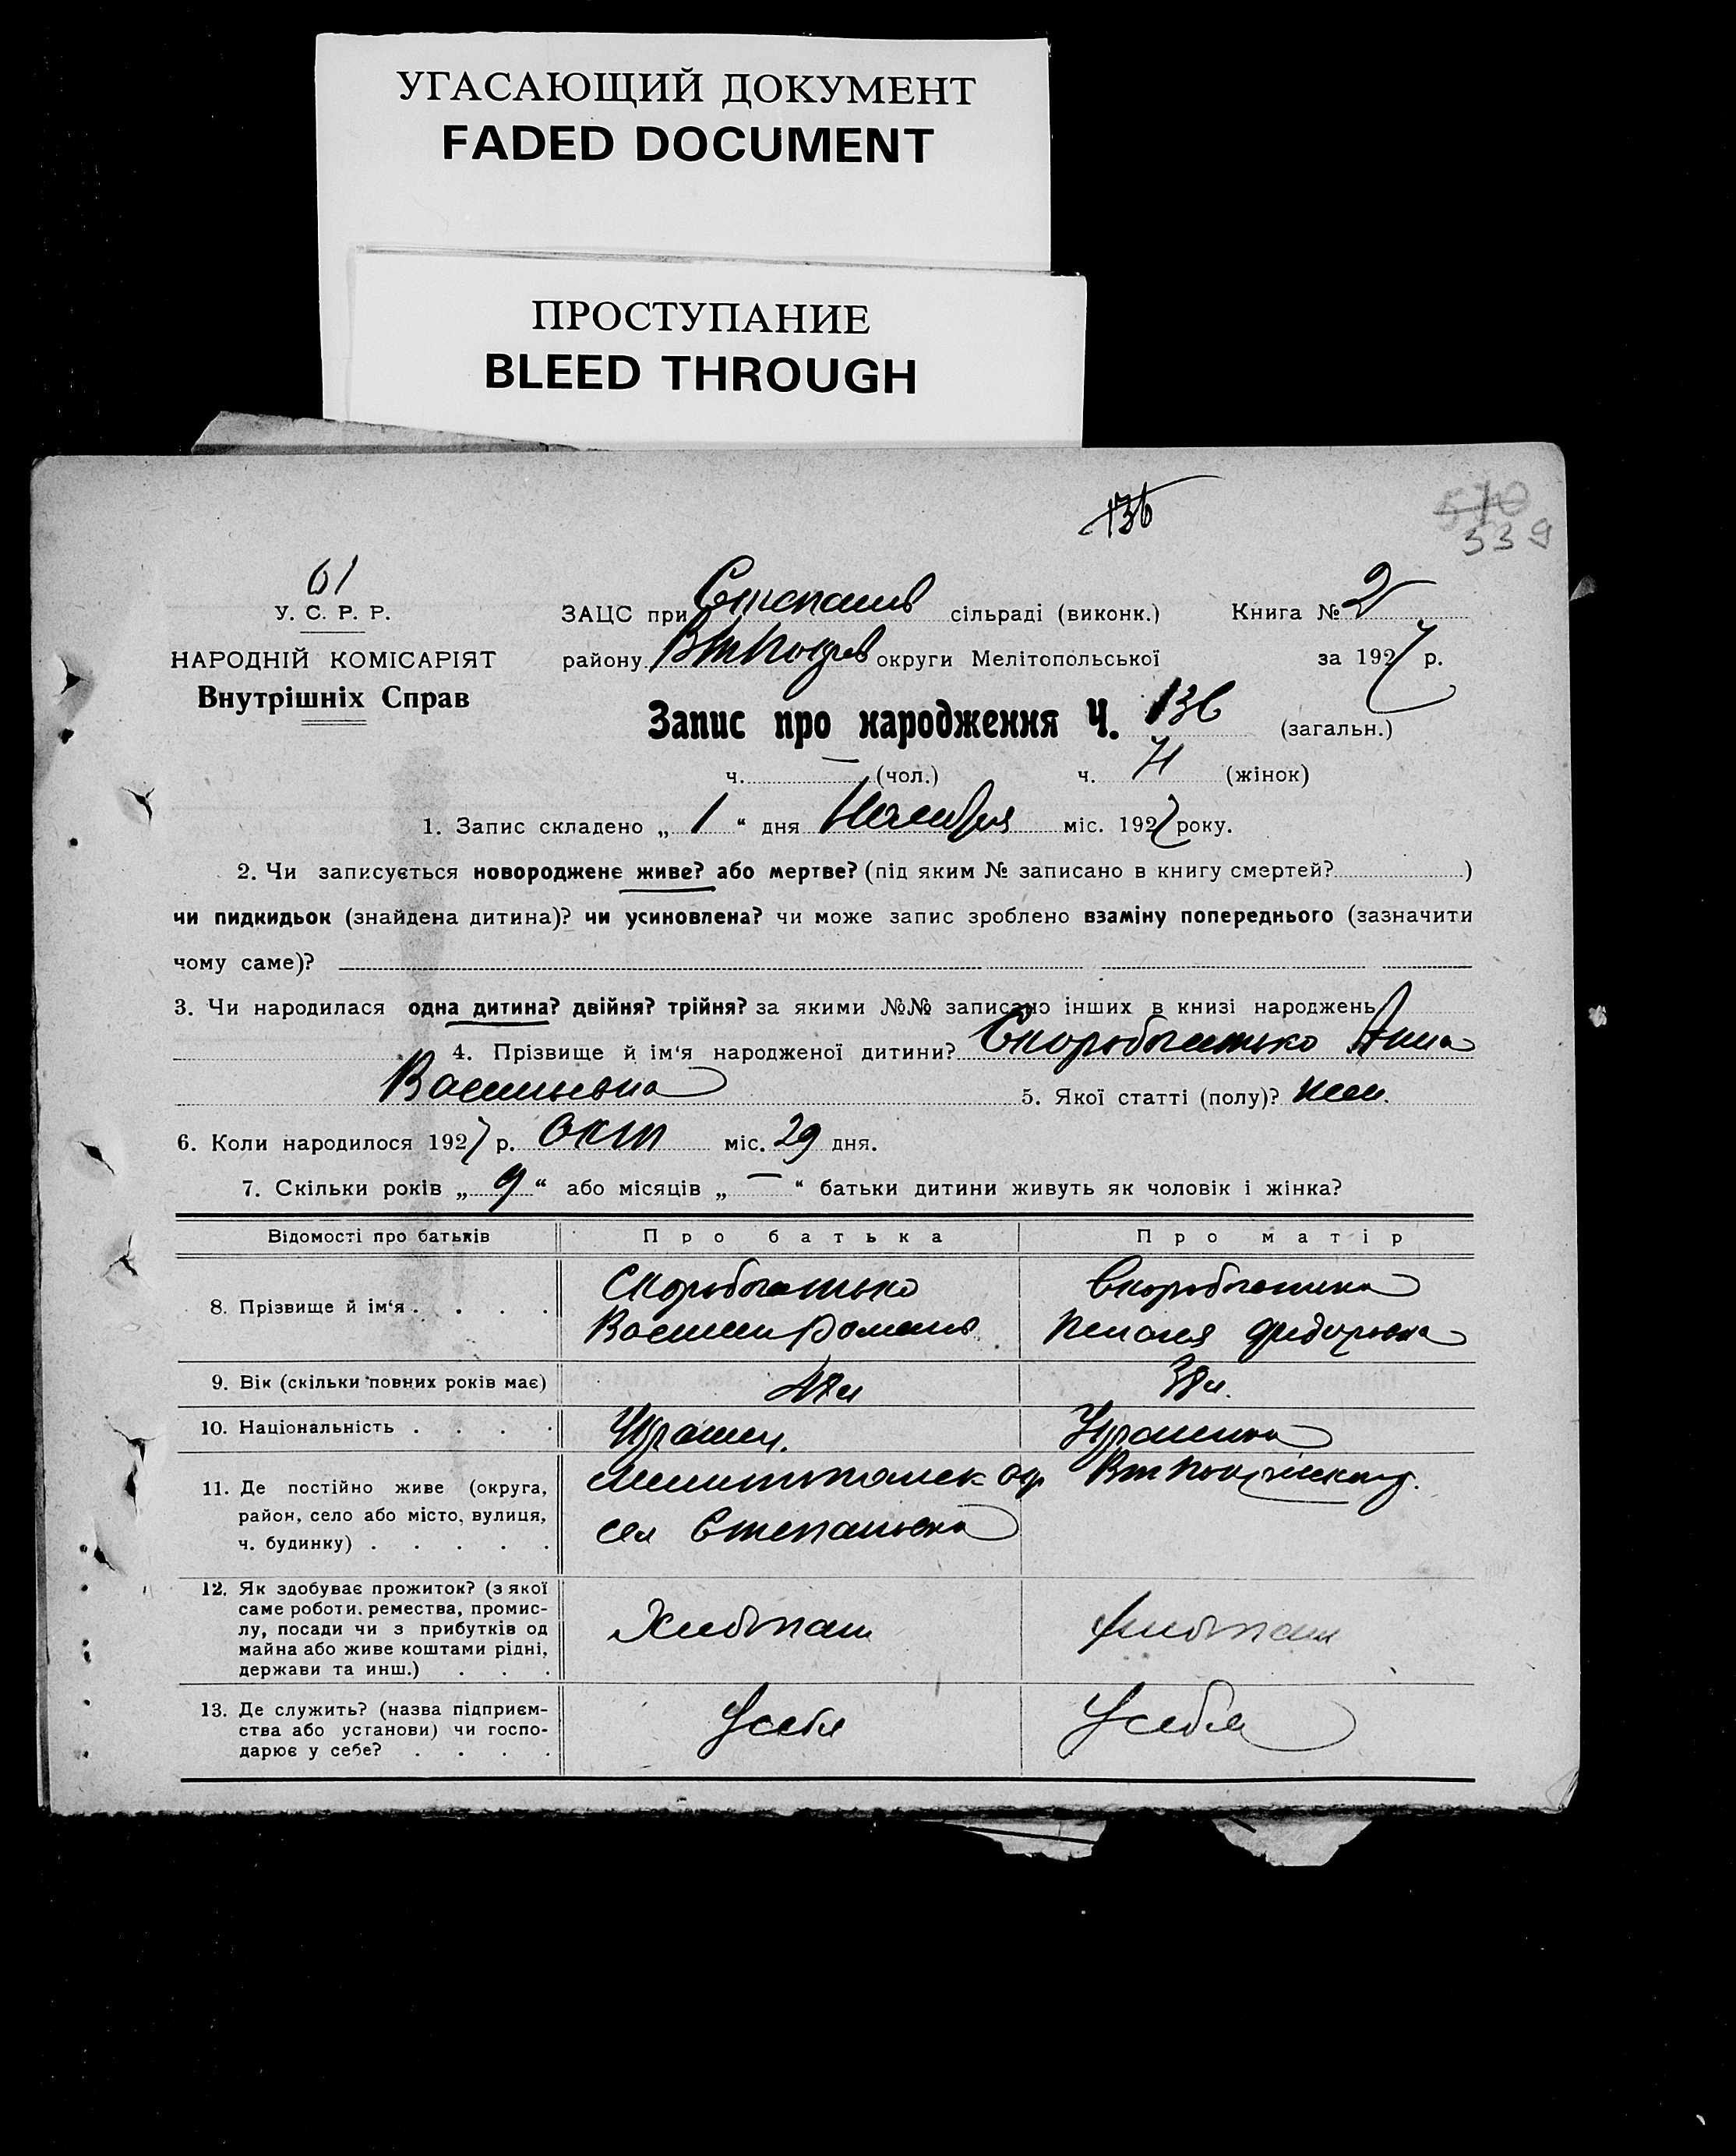 УГАСАЮЩИЙ ДОКУМЕНТ
FADED DOCUMENT
ПРОСТУПАНИЕ
BLEED THROUGH
136
570
339
61
У. С. Р. Р.
НАРОДНІЙ КОМІСАРІЯТ
Внутрішніх Справ
ЗАЦС при Степанів сільраді (виконк.) Книга № 2
району ВтПокров округи Мелітопольської за 1927 р.
Запис про народження Ч. 136 (загальн.)
ч. — (чол.) ч. 71 (жінок)
1. Запис складено „ 1 “ дня Ноября міс. 1927 року.
2. Чи записується новороджене живе? або мертве? (під яким № записано в книгу смертей? )
чи пидкидьок (знайдена дитина)? чи усиновлена? чи може запис зроблено взаміну попереднього (зазначити
чому саме)?
3. Чи народилася одна дитина? двійня? трійня? за якими №№ записано інших в книзі народжень
4. Прізвище й ім‘я народженої дитини? Скоробогатько Анна
Васильевна 5. Якої статті (полу)? жен.
6. Коли народилося 1927 р. Окт міс. 29 дня.
7. Скільки років „ 9 “ або місяців „ — “ батьки дитини живуть як чоловік і жінка?
Відомості про батьків Про батька Про матір
8. Прізвище й ім‘я . . . . Скоробогатько Скоробогатька
Василий Роман Федоровна
9. Вік (скільки повних років має) 38 л.
10. Національність . . . . Украин. Украинка
11. Де постійно живе (округа, район, село або місто, вулиця, ч. будинку) . . . . . Мелитопольск ок ВтПокровск
сел Степановка
12. Як здобуває прожиток? (з якої
саме роботи. ремества, промис-
лу, посади чи з прибутків од
майна або живе коштами рідні,
держави та инш.) . . . Хлебопаш Хлебопаш
13. Де служить? (назва підприєм-
ства або установи) чи госпо-
дарює у себе? . . . . У себя У себя